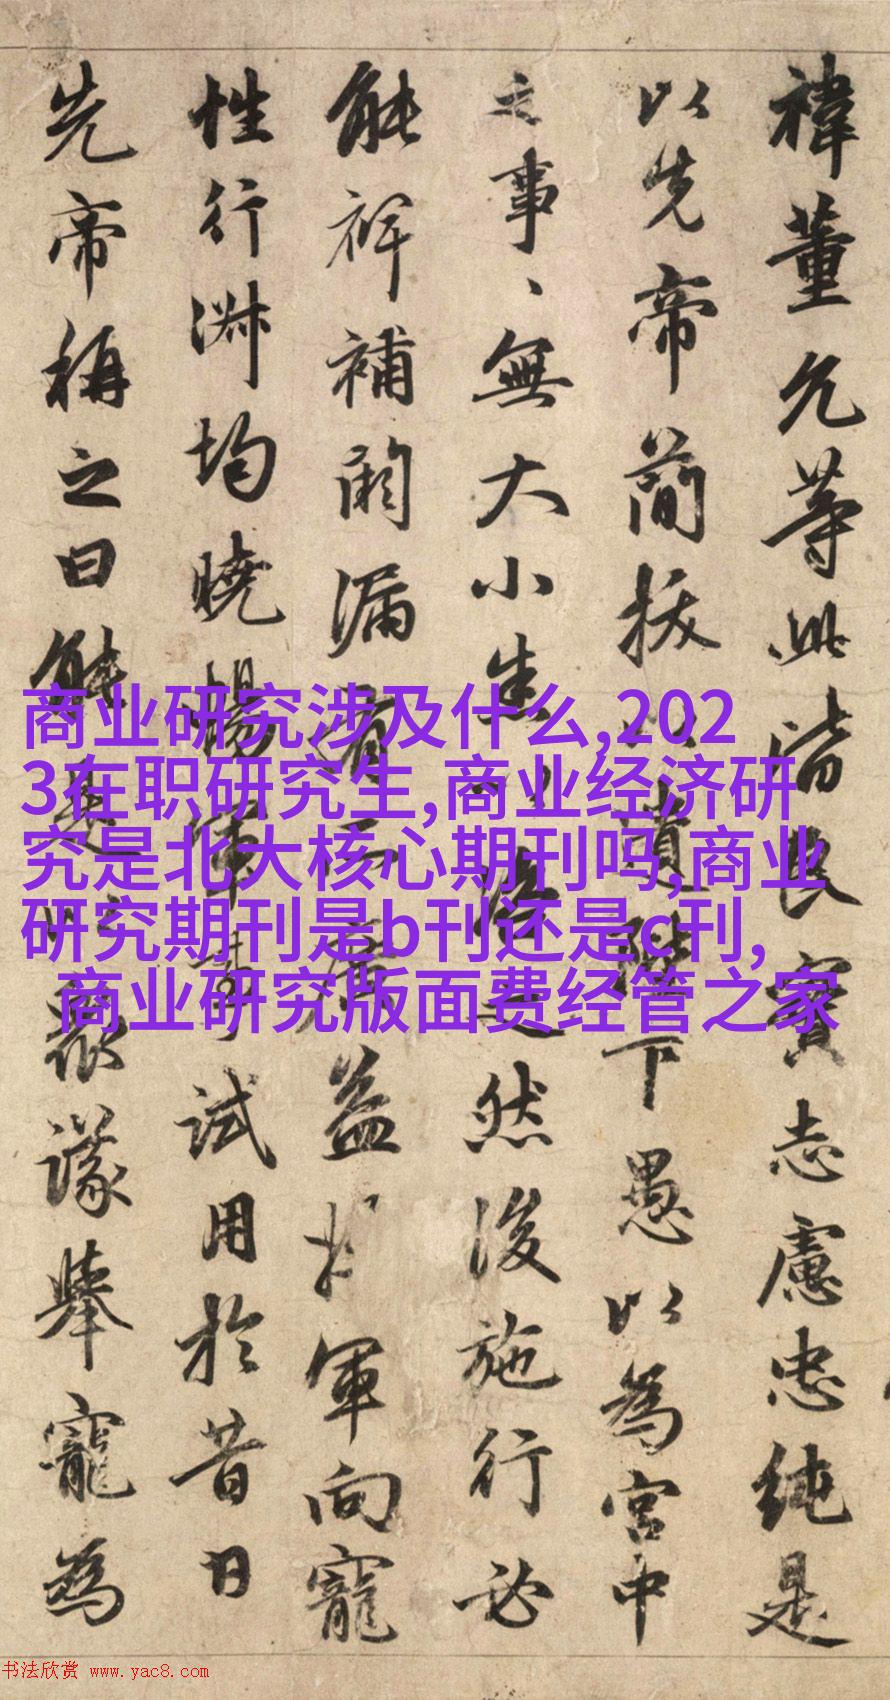 禕董允等此皆良實志慮忠純是
以先帝簡拔以遺陛下愚以為宮中
之事、無大小悉以咨之然後施行必
能裨補闕漏有所廣益將軍向寵
性行淑均曉暢軍事試用於昔日
先帝稱之曰能是以眾議舉寵為
商业研究涉及什么,202
3在职研究生,商业经济研
究是北大核心期刊吗,商业
研究期刊是b刊还是c刊,
商业研究版面费经管之家
书法欣赏 www.yac8.com